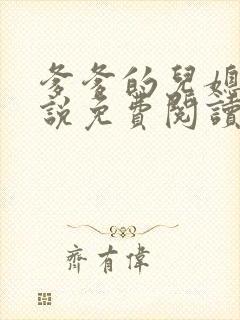 爹爹的兒媳
說免費閱讀
齊有偉